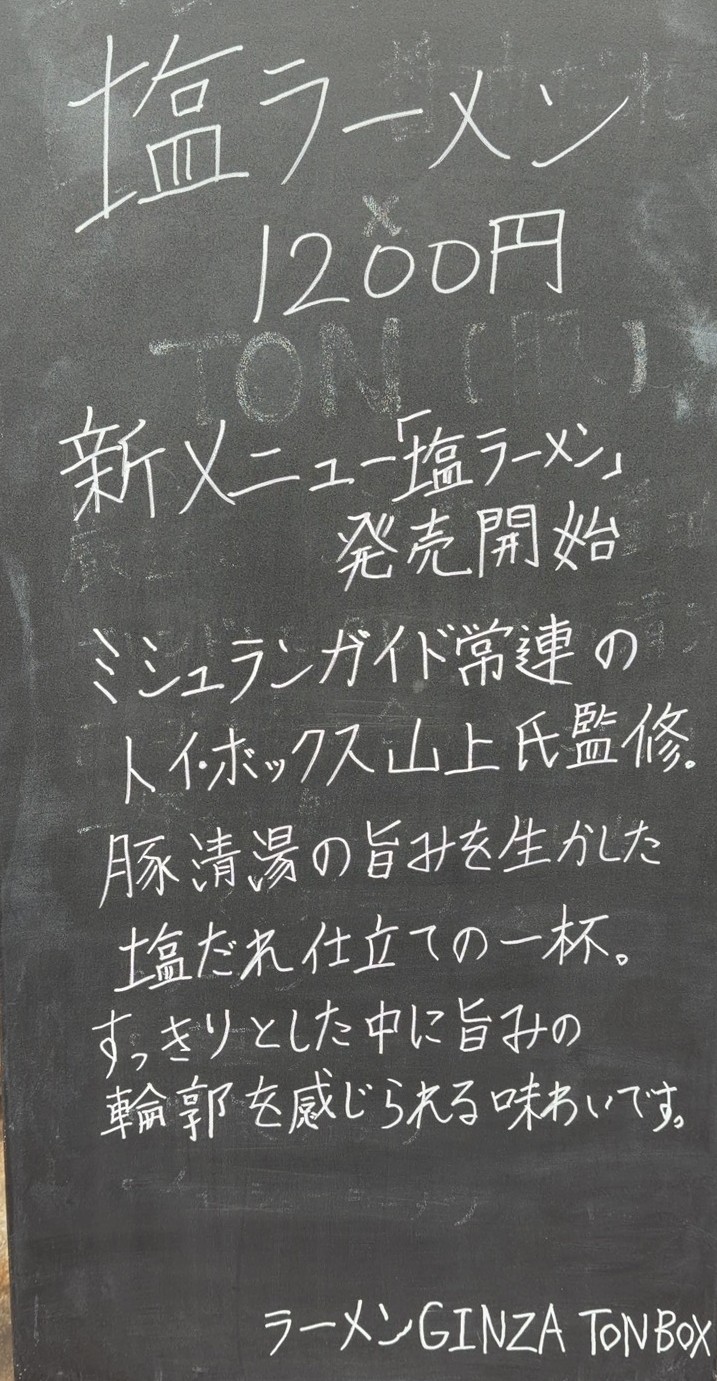 塩ラーメン
1200円
TON
新メニュー「塩ラーメン」
発売開始
ミシュランガイド常連の
トイ・ボックス山上氏監修。
豚清湯の旨みを生かした
塩だれ仕立ての一杯。
すっきりとした中に旨みの
輪郭を感じられる味わいです。
ラーメンGINZA TONBOX